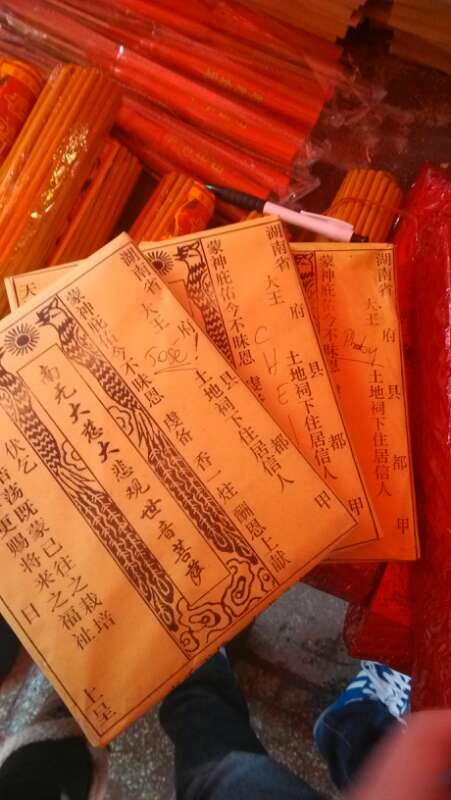 湖南省 府 具 都 甲
大王 José! 土地祠下住居信人
蒙神庇佑今不昧恩 虔备 香一炷酬恩上献
南无大慈大悲观世音菩萨
伏乞
既蒙已往之栽培
更赐将来之福祉
日 上呈
湖南省 府 具 都 甲
大王 CHE 土地祠下住居信人
蒙神庇佑今不昧恩 虔
湖南省 府 具 都 甲
大王 土地祠下住居信人
蒙神庇佑今不昧恩
天